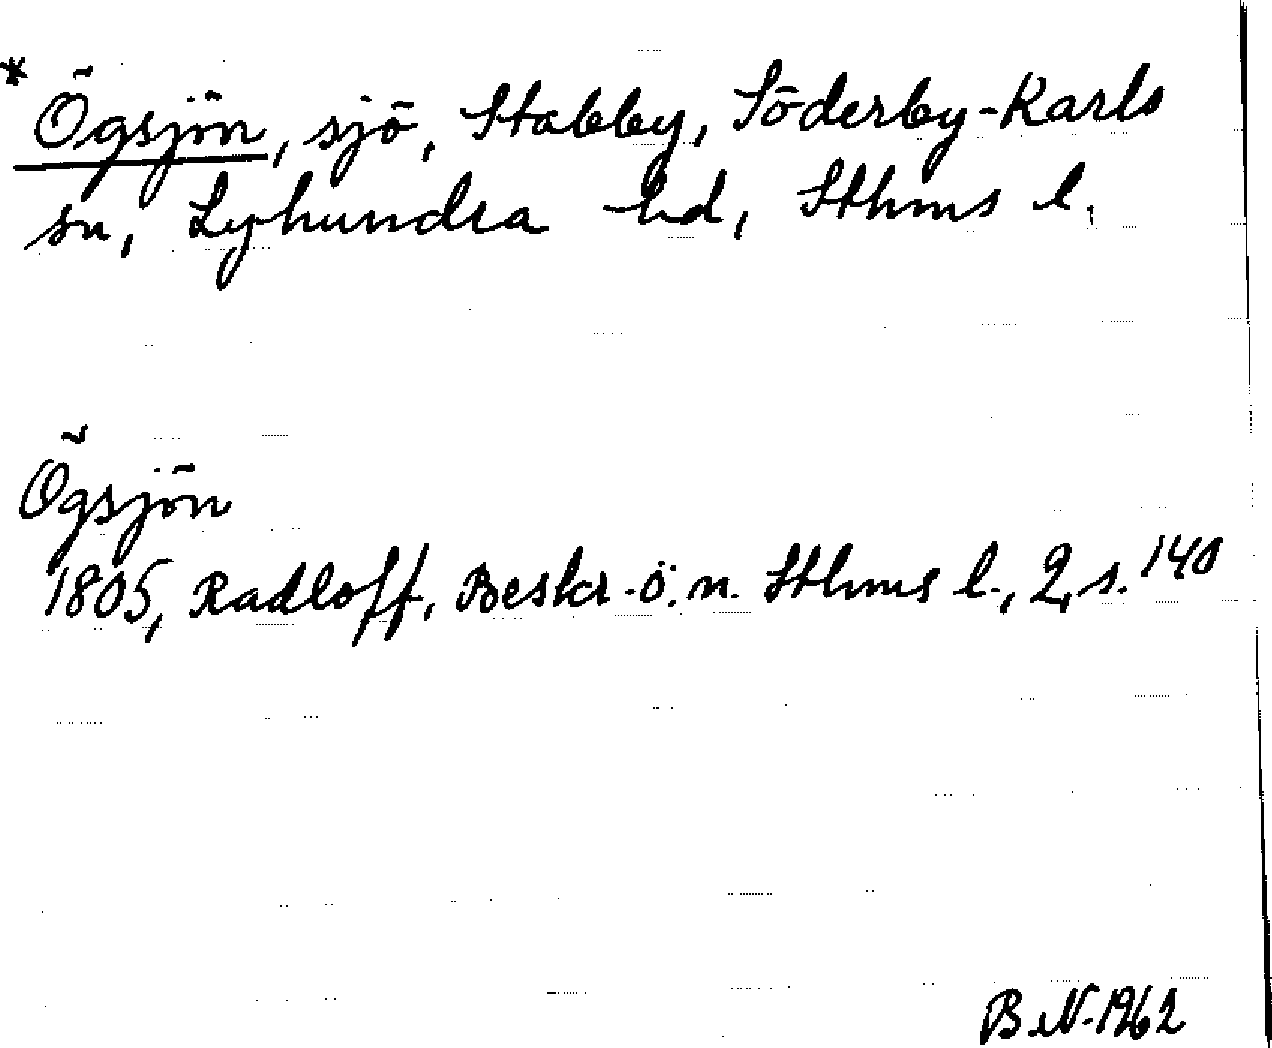 * Ögsjön, sjö, Stabby, Söderby-Karls
sn, Lyhundra hd, Sthms l.
Ögsjön
1805, Radloff, Beskr. ö. n. Sthms l., 2, s. 140
B.N. 1962